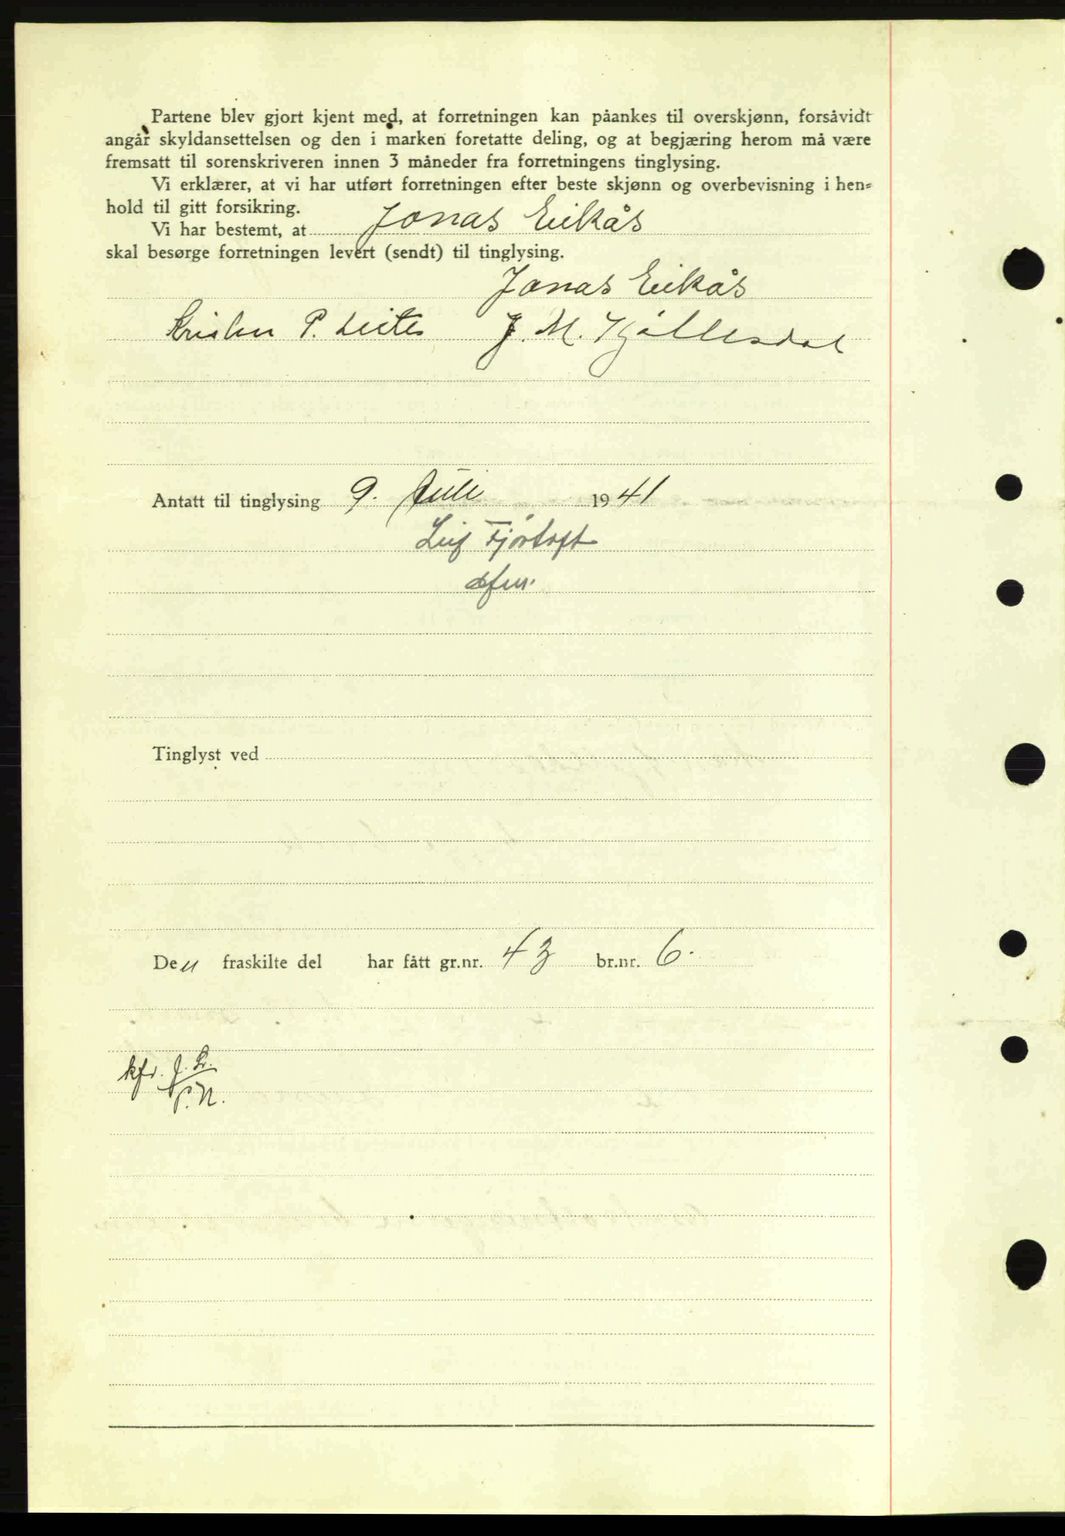 Partene blev gjort kjent med, at forretningen kan påankes til overskjønn, forsåvidt
angår skyldansettelsen og den i marken foretatte deling, og at begjæring herom må være
fremsatt til sorenskriveren innen 3 måneder fra forretningens tinglysing.
Vi erklærer, at vi har utført forretningen efter beste skjønn og overbevisning i hen=
hold til gitt forsikring.
Vi har bestemt, at Jonas Eikås
skal besørge forretningen levert (sendt) til tinglysing.
Jonas Eikås
P. J. M.
Antatt til tinglysing 9. Juli 1941
Leif Fjørtoft
Tinglyst ved
Den fraskilte del har fått gr.nr. 43 br.nr. 6.
kfr. J. L.
P.N.